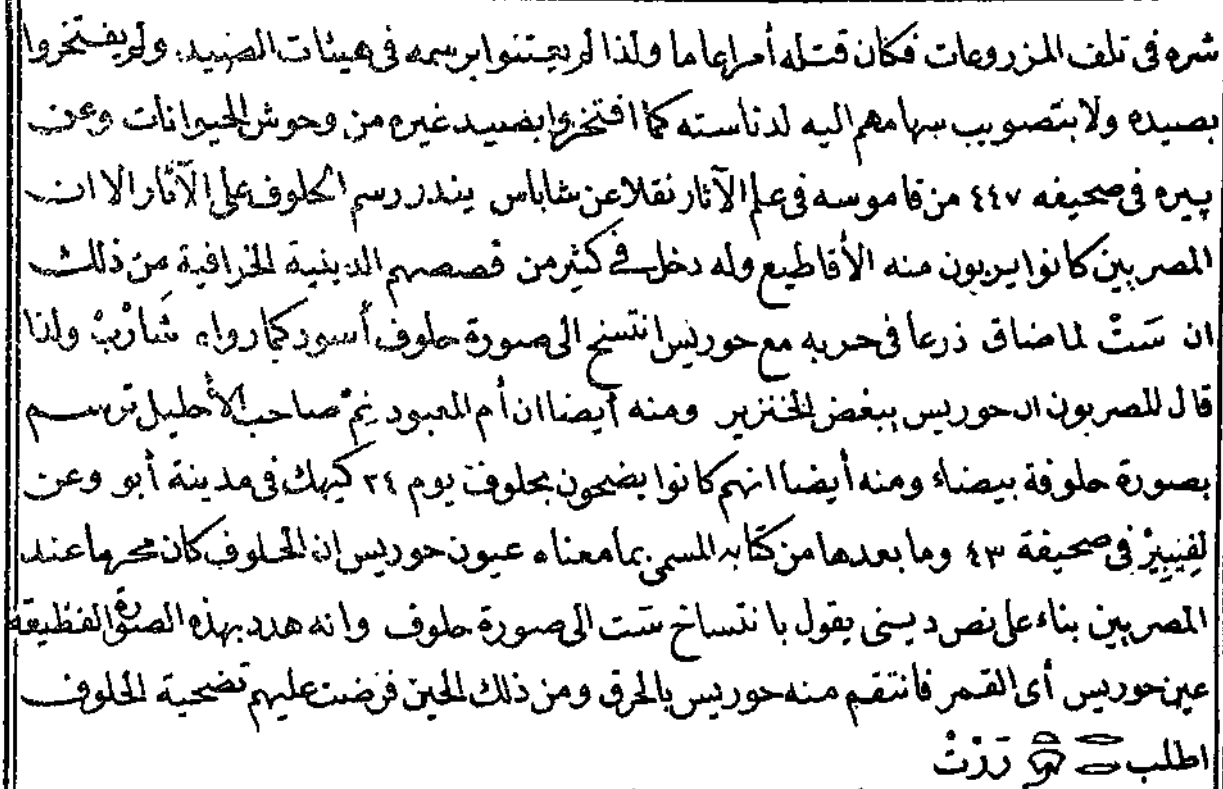 شره فى تلف المزروعات فكان قتله أمراعاما ولذا لم يعتنوا برسمه فى هيئات الصيد. ولم يفتخروا
بصيده ولا بتصويب سهامهم اليه لدناسته كما افتخروا بصيد غيره من وحوش الحيوانات وعن
بيره فى صحيفه ٤٤٧ من قاموسه فى علم الآثار نقلا عن شاباس يندر رسم الحلوف على الآثار الا ان
المصريين كانوا يربون منه الأقاطيع وله دخل فى كثير من قصصهم الدينية الخرافية من ذلك
ان سَتْ لما ضاق ذرعا فى حربه مع حوريس انتسخ الى صورة حلوف أسود كما رواه شَارْبْ ولذا
قال المصريون ان حوريس يبغض الخنزير ومنه أيضا ان أم المعبود خِمْ صاحب الأحليل ترسم
بصورة حلوفة بيضاء ومنه أيضا انهم كانوا يضحون بحلوف يوم ٢٤ كيهك فى مدينة أبو وعن
لِفِيبِيرْ فى صحيفة ٤٣ وما بعدها من كتابه المسمى بما معناه عيون حوريس ان الحلوف كان محرما عند
المصريين بناء على نص دينى يقول بانتساخ سَت الى صورة حلوف وانه هدد بهذه الصورة الفظيعة
عين حوريس أى القمر فانتقم منه حوريس بالحرق ومن ذلك الحين فرضت عليهم تضحية الحلوف
اطلب رَرْتْ